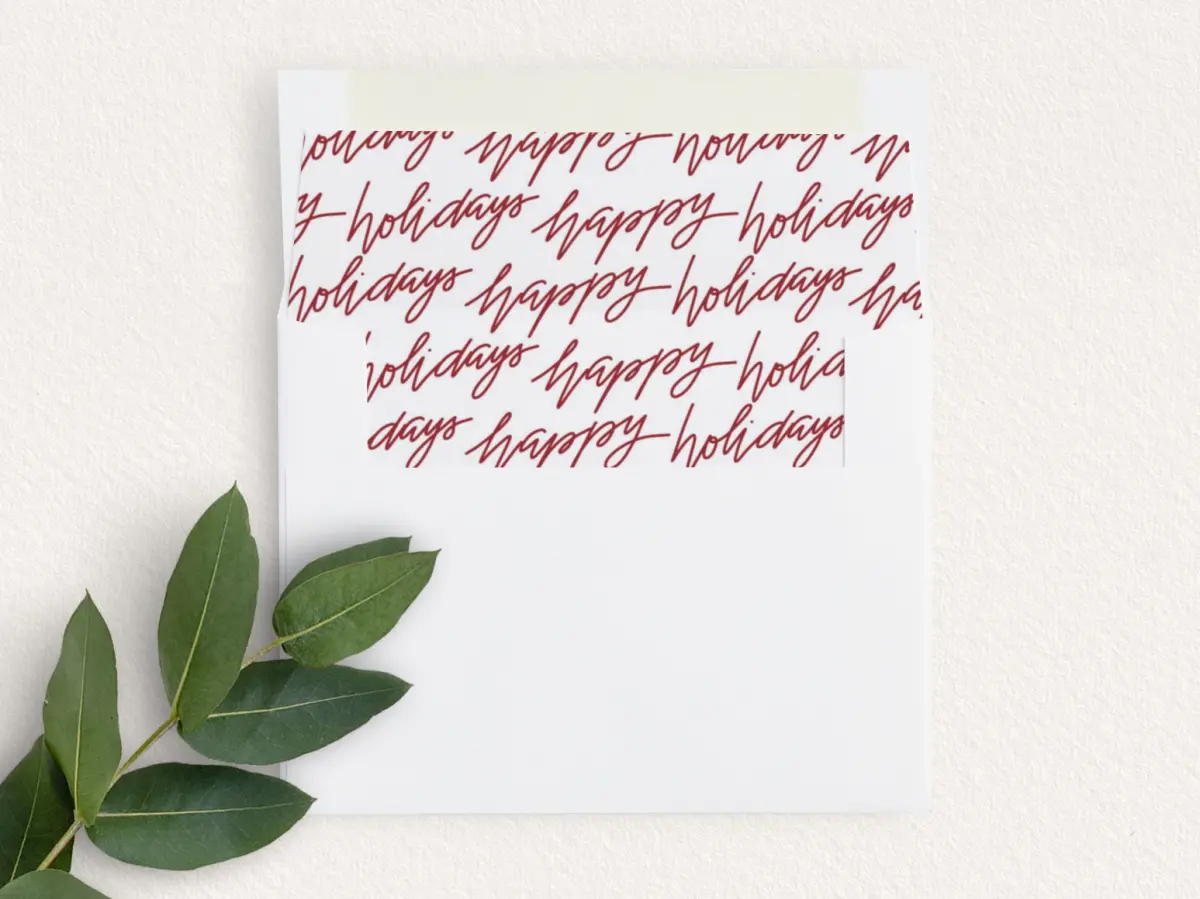 holidays happy holidays
holidays happy holidays
holidays happy holidays
holidays happy
days happy holidays